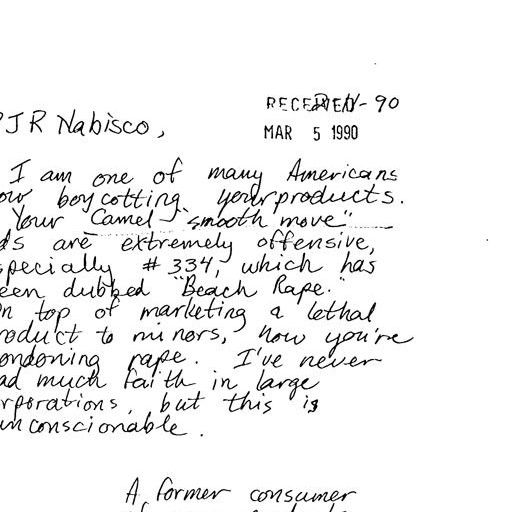 RECEIVED - 90
MAR 5 1990
JR Nabisco,
I am one of many Americans
boycotting your products.
Your Camel "smooth move"
are extremely offensive,
specially # 334, which has
een dubbed "Beach Rape."
n top of marketing a lethal
roduct to minors, now you're
ondoning rape. I've never
ad much faith in large
rporations, but this is
unconscionable.
A former consumer